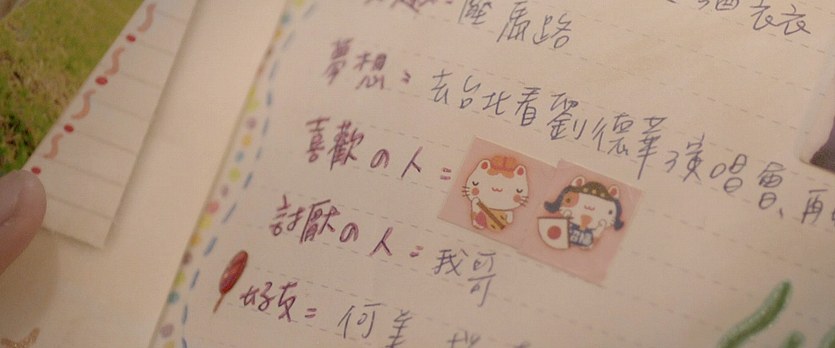 壓馬路
夢想：去台北看劉德華演唱會、再
喜歡の人：
討厭の人：我哥
好友：何美